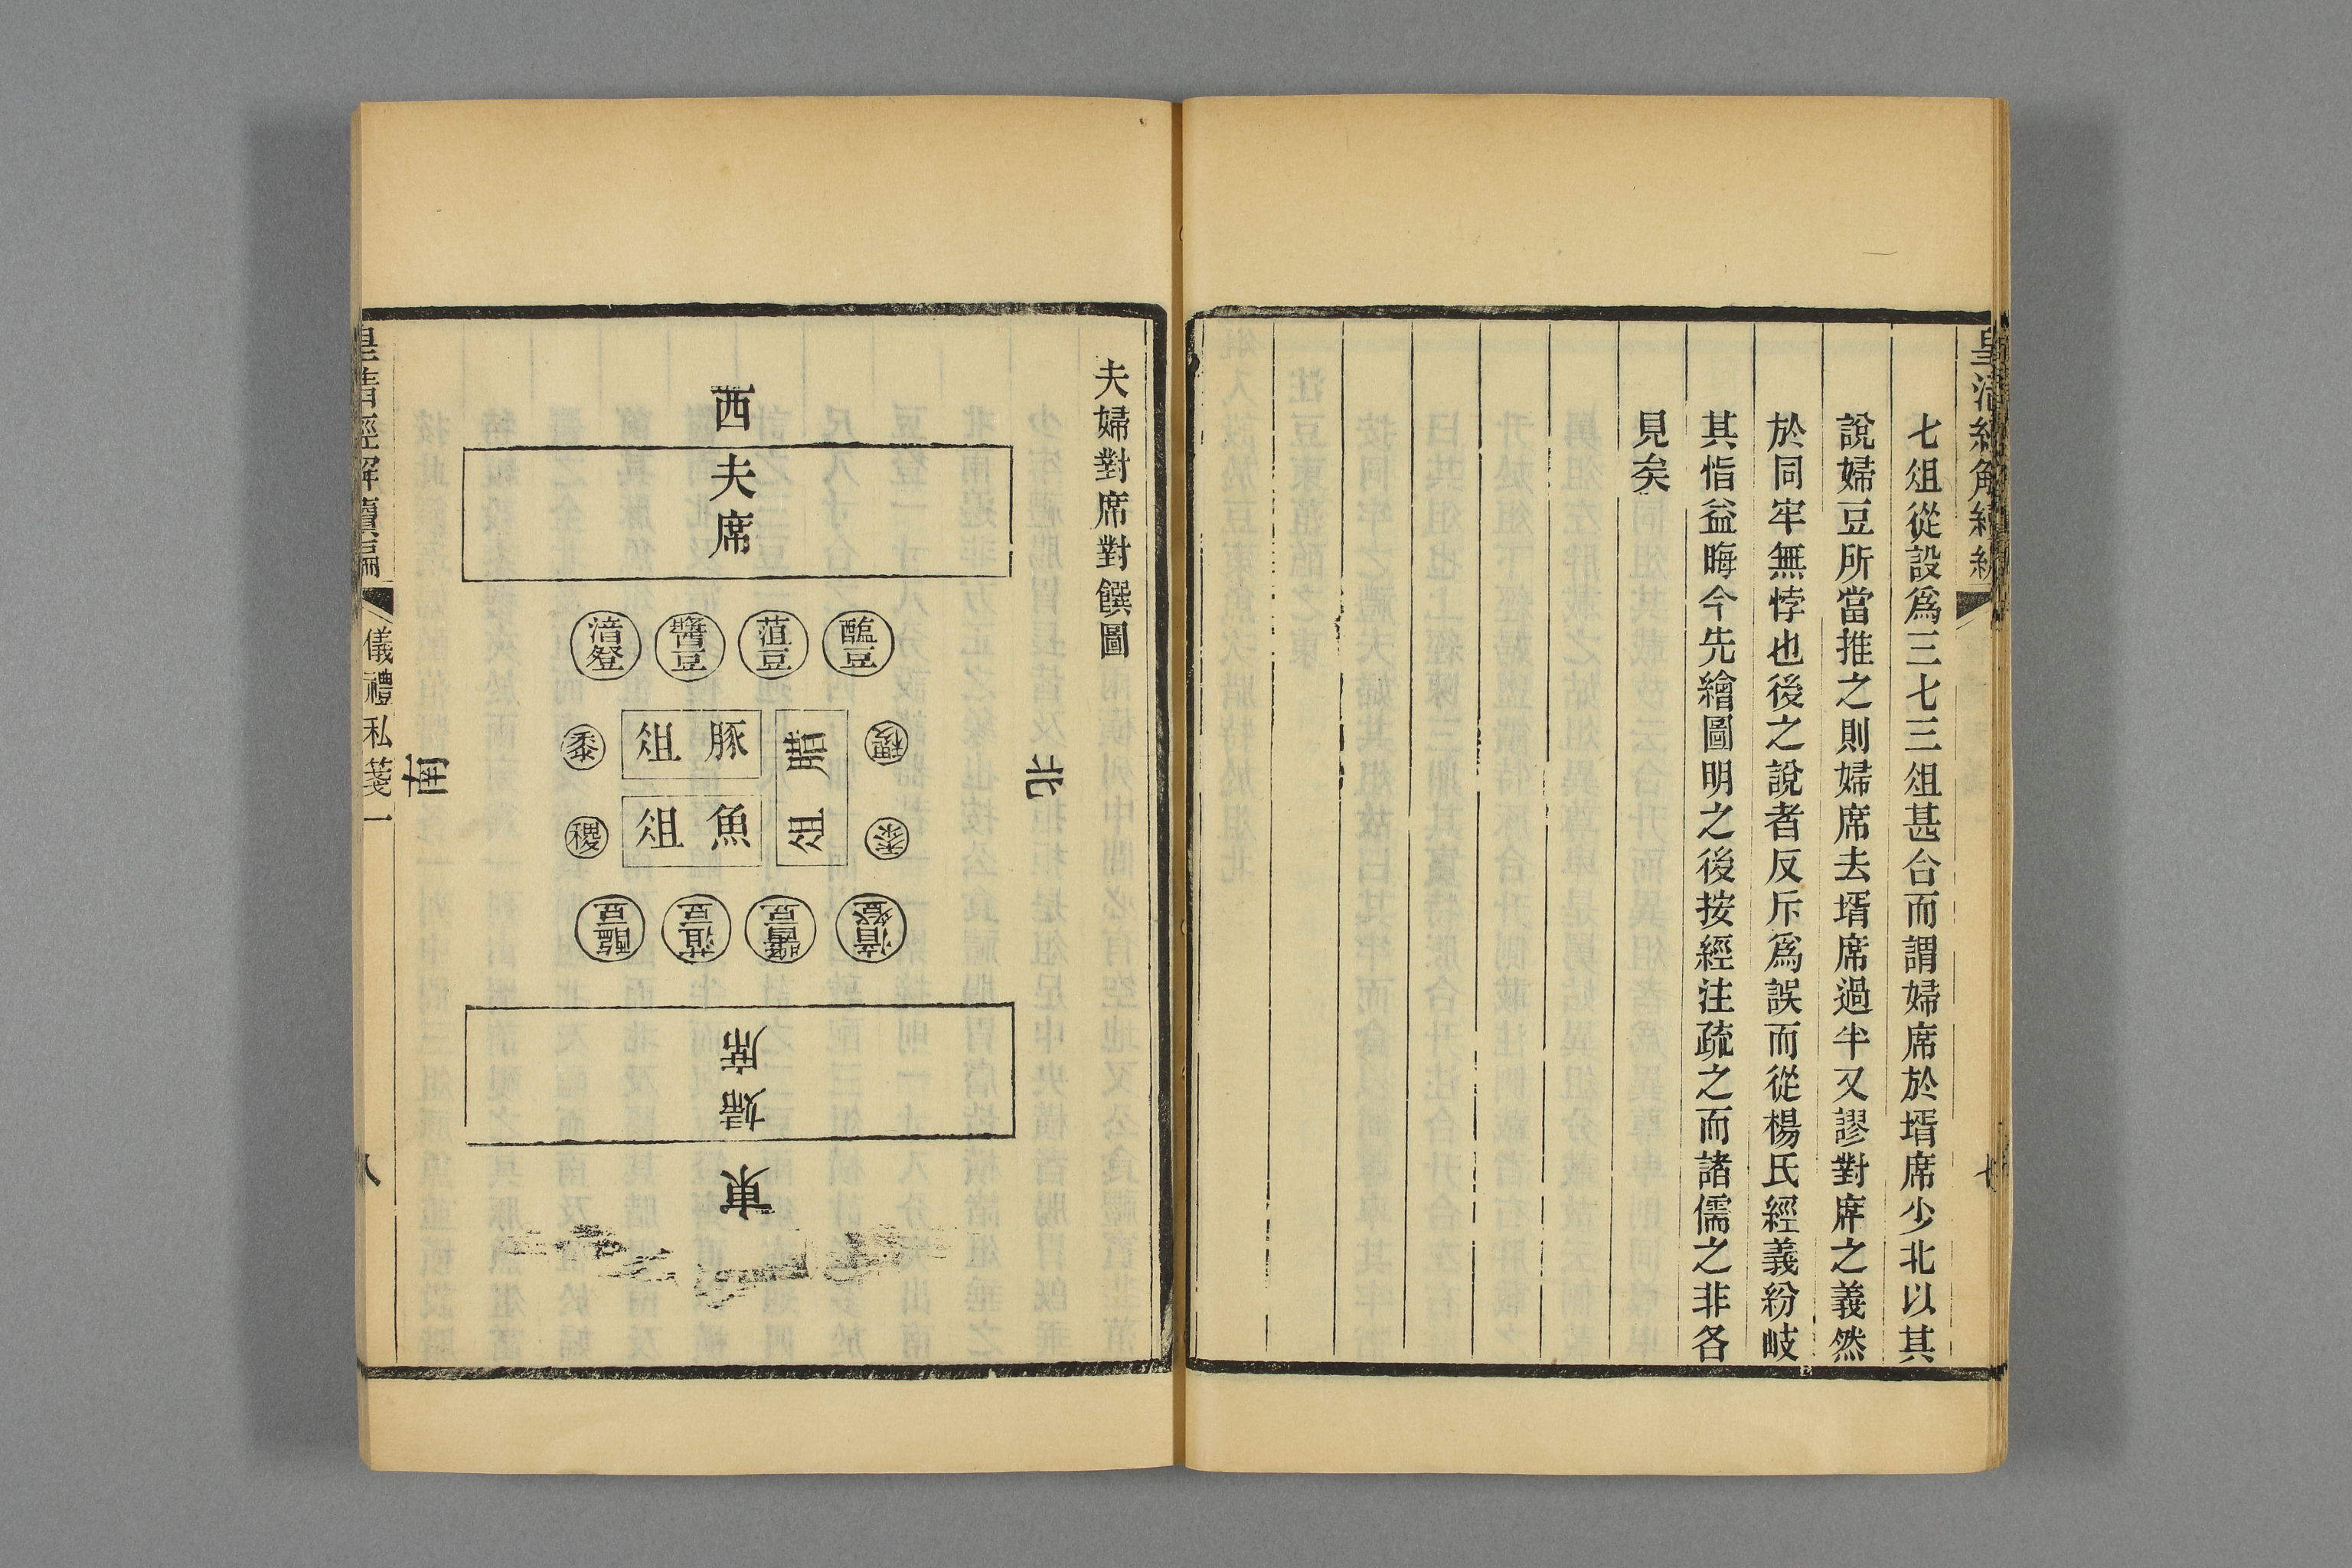 皇清經解續編
七
七俎從設爲三七三俎甚合而謂婦席於壻席少北以其
說婦豆所當推之則婦席去壻席過半又謬對席之義然
於同牢無悖也後之說者反斥爲誤而從楊氏經義紛岐
其恉益晦今先繪圖明之後按經注疏之而諸儒之非各
見矣
夫婦對席對饌圖
北
西
夫席
醓豆
菹豆
醬豆
湆登
稷
腊俎
豚俎
黍
黍
魚俎
稷
湆登
醬豆
菹豆
醓豆
婦席
東
南
皇清經解續編
儀禮私箋一
八